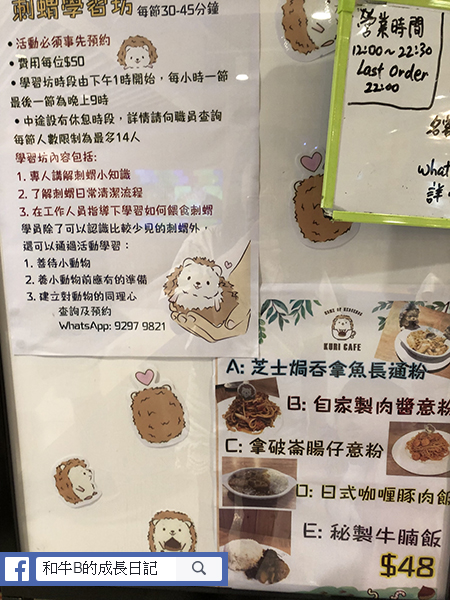 刺蝟學習坊 每節30-45分鐘
• 活動必須事先預約
• 費用每位$50
• 學習坊時段由下午1時開始，每小時一節
最後一節為晚上9時
• 中途設有休息時段，詳情請向職員查詢
每節人數限制為最多14人
學習坊內容包括:
1. 專人講解刺蝟小知識
2. 了解刺蝟日常清潔流程
3. 在工作人員指導下學習如何餵食刺蝟
學員除了可以認識比較少見的刺蝟外，
還可以通過活動學習：
1. 善待小動物
2. 養小動物前應有的準備
3. 建立對動物的同理心
查詢及預約
WhatsApp: 9297 9821
營業時間
12:00~22:30
Last Order
22:00
What
詳
HOME OF HEDGEHOG
KURI CAFE
A: 芝士焗吞拿魚長通粉
B: 自家製肉醬意粉
C: 拿破崙腸仔意粉
D: 日式咖喱豚肉飯
E: 秘製牛腩飯
$48
和牛B的成長日記